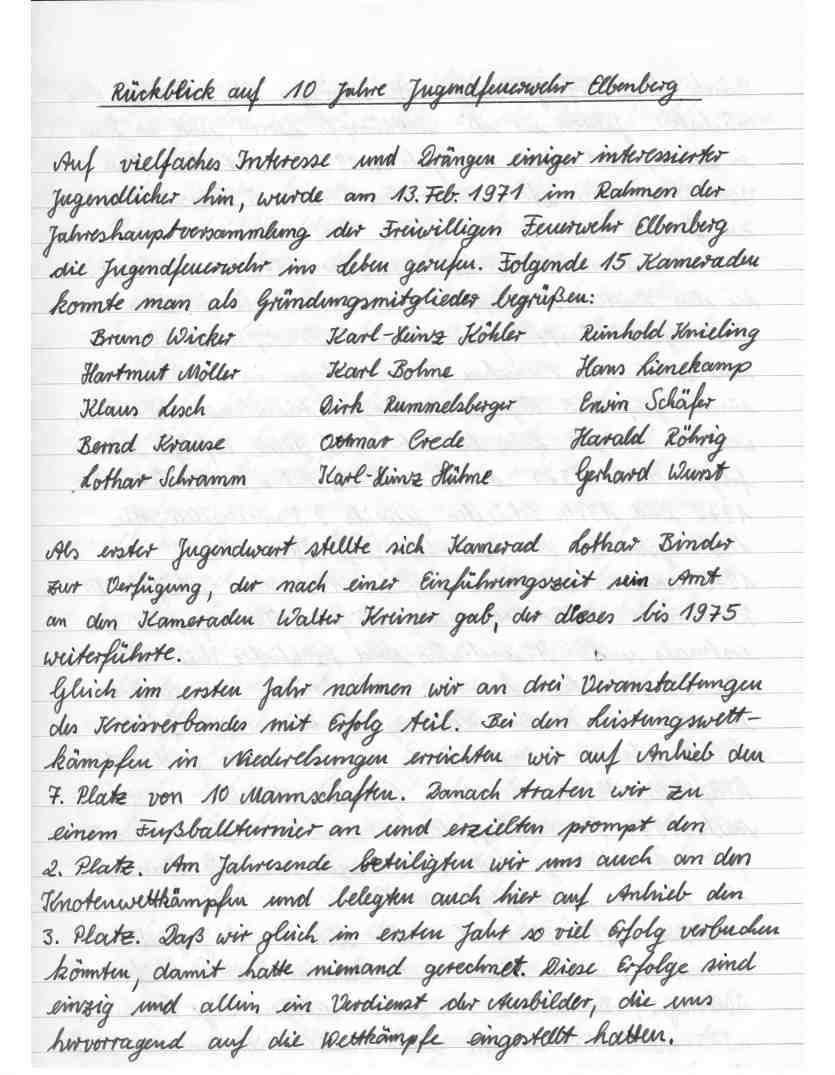 Rückblick auf 10 Jahre Jugendfeuerwehr Elbenberg
Auf vielfaches Interesse und Drängen einiger interessierter
Jugendlicher hin, wurde am 13. Feb. 1971 im Rahmen der
Jahreshauptversammlung der Freiwilligen Feuerwehr Elbenberg
die Jugendfeuerwehr ins Leben gerufen. Folgende 15 Kameraden
konnte man als Gründungsmitglieder begrüßen:
Bruno Wicker Karl-Heinz Köhler Reinhold Knieling
Hartmut Möller Karl Bohne Hans Lienekamp
Klaus Lesch Dirk Rummelsberger Erwin Schäfer
Bernd Krause Ottmar Crede Harald Röhrig
Lothar Schramm Karl-Heinz Hühne Gerhard Wurst
Als erster Jugendwart stellte sich Kamerad Lothar Binder
zur Verfügung, der nach einer Einführungszeit sein Amt
an den Kameraden Walter Kreiner gab, der dieses bis 1975
weiterführte.
Gleich im ersten Jahr nahmen wir an drei Veranstaltungen
des Kreisverbandes mit Erfolg teil. Bei den Leistungswett-
kämpfen in Niederelsungen erreichten wir auf Anhieb den
7. Platz von 10 Mannschaften. Danach traten wir zu
einem Fußballturnier an und erzielten prompt den
2. Platz. Am Jahresende beteiligten wir uns auch an den
Knotenwettkämpfen und belegten auch hier auf Anhieb den
3. Platz. Daß wir gleich im ersten Jahr so viel Erfolg verbuchen
könnten, damit hatte niemand gerechnet. Diese Erfolge sind
einzig und allein ein Verdienst der Ausbilder, die uns
hervorragend auf die Wettkämpfe eingestellt hatten.